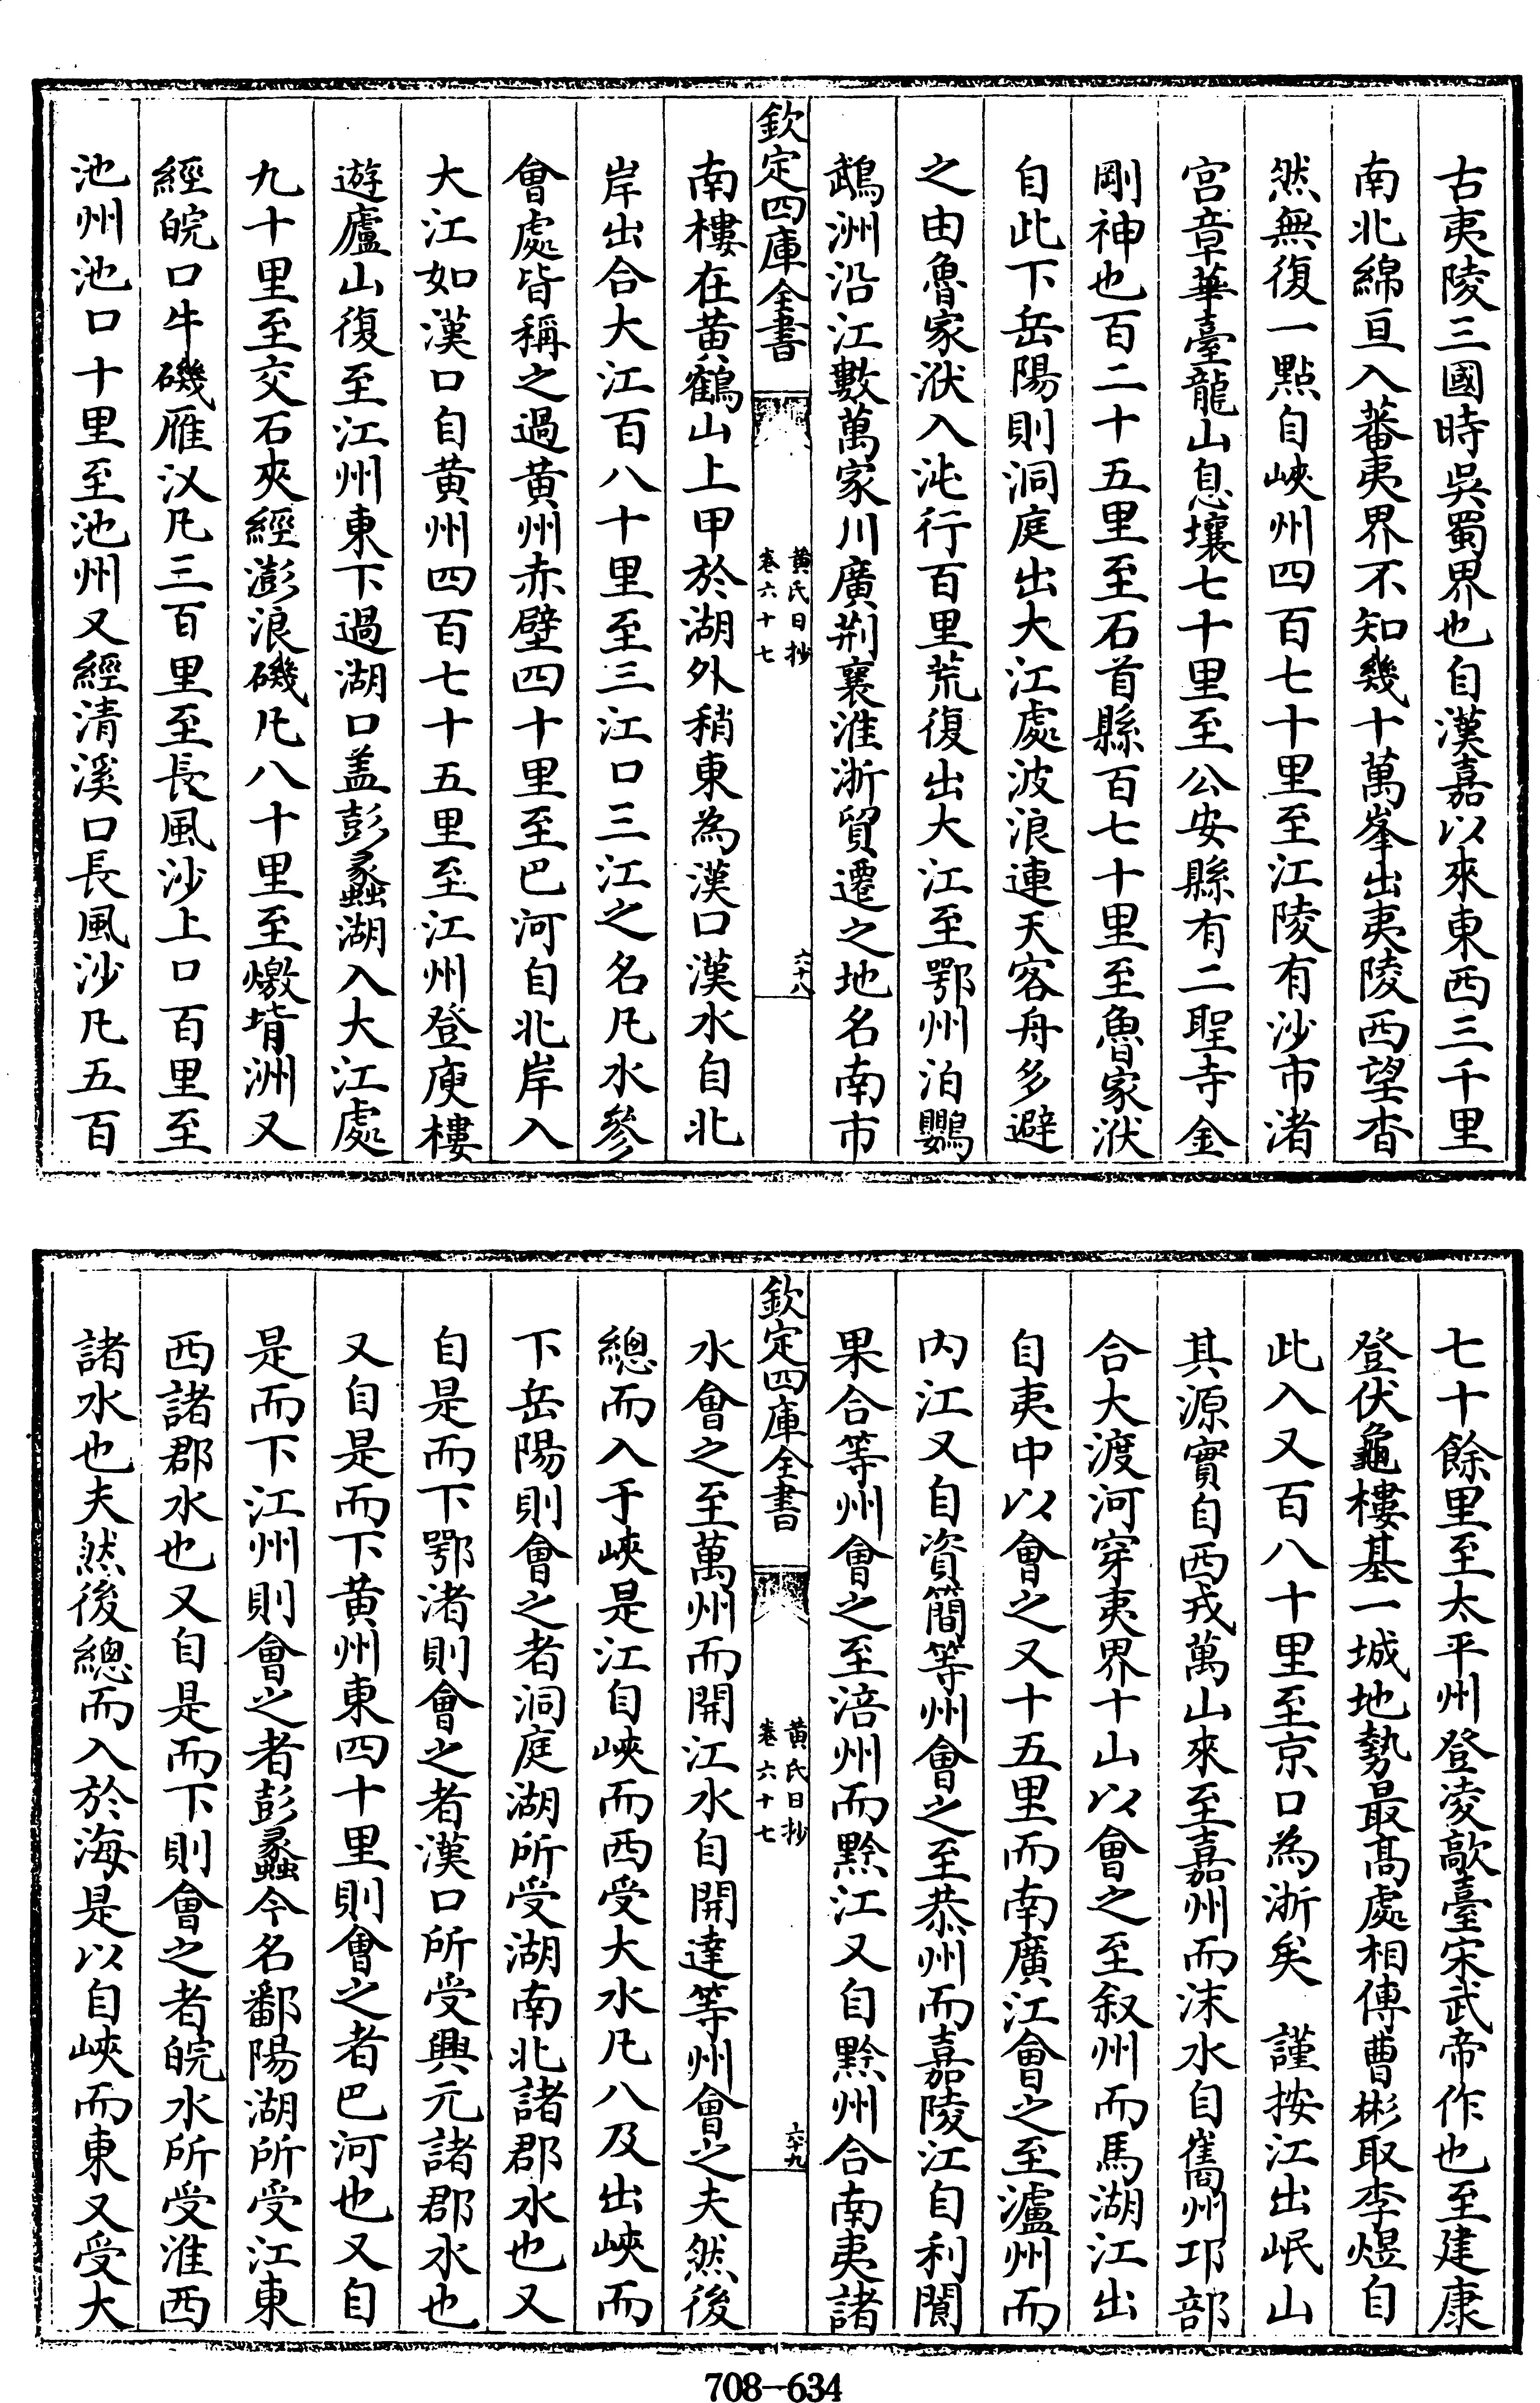 古夷陵三國時吳蜀界也自漢嘉以來東西三千里
南北綿亘入蕃夷界不知幾十萬峯出夷陵西望杳
然無復一點自峽州四百七十里至江陵有沙市渚
宮章華臺龍山息壤七十里至公安縣有二聖寺金
剛神也百二十五里至石首縣百七十里至魯家洑
自此下岳陽則洞庭出大江處波浪連天客舟多避
之由魯家洑入沌行百里荒復出大江至鄂州泊鸚
鵡洲沿江數萬家川廣荆襄淮浙貿遷之地名南市
欽定四庫全書
黄氏日抄
卷六十七
六十八
南樓在黄鶴山上甲於湖外稍東為漢口漢水自北
岸出合大江百八十里至三江口三江之名凡水參
會處皆稱之過黄州赤壁四十里至巴河自北岸入
大江如漢口自黄州四百七十五里至江州登庾樓
遊廬山復至江州東下過湖口盖彭蠡湖入大江處
九十里至交石夾經澎浪磯凡八十里至燉堉洲又
經皖口牛磯雁汊凡三百里至長風沙上口百里至
池州池口十里至池州又經清溪口長風沙凡五百
七十餘里至太平州登凌歊臺宋武帝作也至建康
登伏龜樓基一城地勢最髙處相傳曹彬取李煜自
此入又百八十里至京口為浙矣　謹按江出岷山
其源實自西戎萬山來至嘉州而沫水自巂州邛部
合大渡河穿夷界十山以會之至叙州而馬湖江出
自夷中以會之又十五里而南廣江會之至瀘州而
内江又自資簡等州會之至恭州而嘉陵江自利閬
果合等州會之至涪州而黔江又自黔州合南夷諸
欽定四庫全書
黄氏日抄
卷六十七
六十九
水會之至萬州而開江水自開達等州會之夫然後
總而入于峽是江自峽而西受大水凡八及出峽而
下岳陽則會之者洞庭湖所受湖南北諸郡水也又
自是而下鄂渚則會之者漢口所受興元諸郡水也
又自是而下黄州東四十里則會之者巴河也又自
是而下江州則會之者彭蠡今名鄱陽湖所受江東
西諸郡水也又自是而下則會之者皖水所受淮西
諸水也夫然後總而入於海是以自峽而東又受大
708—634